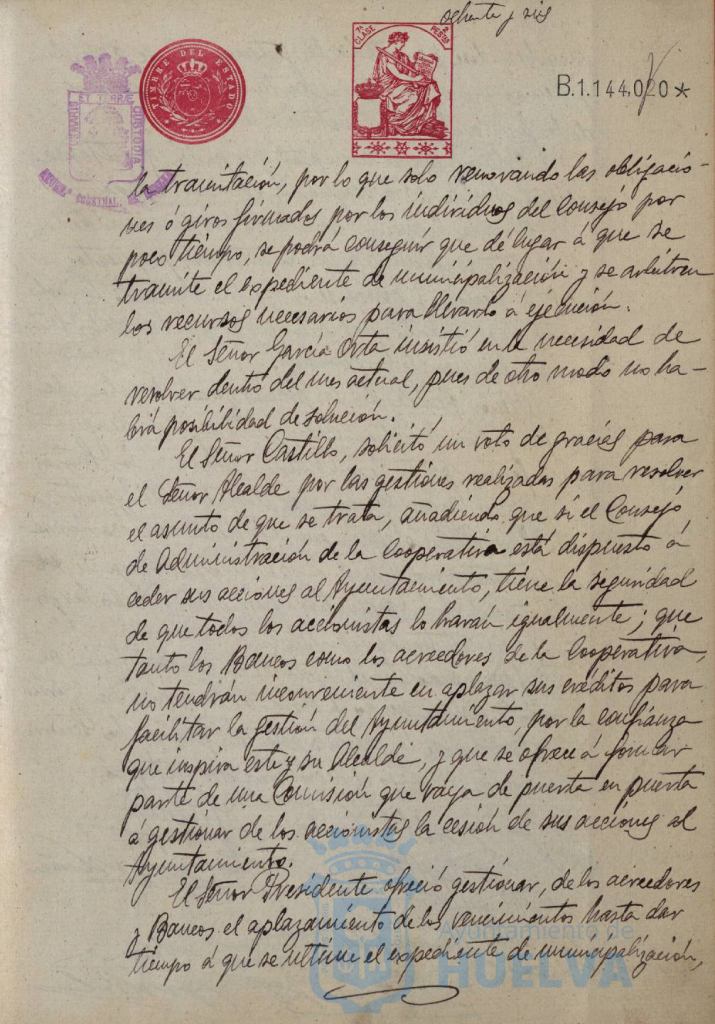 ochenta y seis
TIMBRE DEL ESTADO
7ª CLASE PESETAS
B.1.144.020 *
PORTUS MARIS ET TERRAE CUSTODIA
HUELVA
la tramitación, por lo que solo renovando las obligacio-
nes ó giros firmados por los individuos del Consejo por
poco tiempo, se podrá conseguir que dé lugar á que se
tramite el expediente de municipalización y se arbitren
los recursos necesarios para llevarlo á ejecución.
El Señor García Orta insistió en la necesidad de
resolver dentro del mes actual, pues de otro modo no ha-
brá posibilidad de solución.
El Señor Castillo, solicitó un voto de gracias para
el Señor Alcalde por las gestiones realizadas para resolver
el asunto de que se trata, añadiendo que si el Consejo
de Administración de la Cooperativa está dispuesto á
ceder sus acciones al Ayuntamiento, tiene la seguridad
de que todos los accionistas lo harán igualmente; que
tanto los Bancos como los acreedores de la Cooperativa,
no tendrán inconveniente en aplazar sus créditos para
facilitar la gestión del Ayuntamiento, por la confianza
que inspira este y su Alcalde, y que se ofrece á formar
parte de una Comisión que vaya de puerta en puerta
á gestionar de los accionistas la cesión de sus acciones al
Ayuntamiento.
El Señor Presidente ofreció gestionar, de los acreedores
y Bancos el aplazamiento de los vencimientos hasta dar
tiempo á que se ultime el expediente de municipalización,
Ayuntamiento de
HUELVA